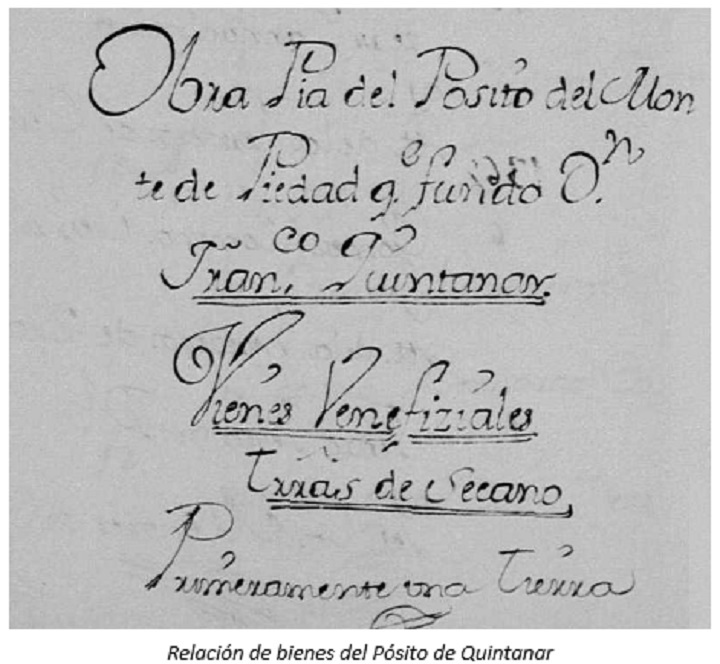 Obra Pia del Pósito del Mon
te de Piedad q.e fundo D.n
Fran.co Quintanar.
Vienes Venefiziales
trras de Secano,
Primeramente una tierra
Relación de bienes del Pósito de Quintanar